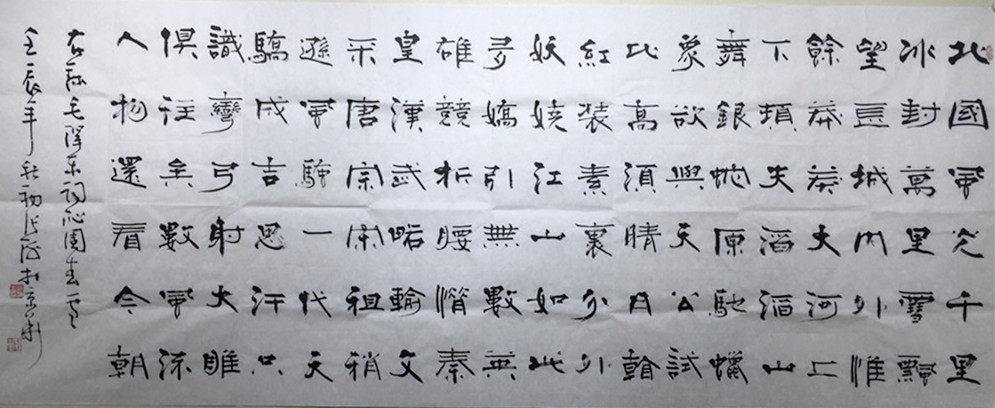 北國風光千里
冰封萬里雪飄
望長城內外惟
餘莽莽大河上
下頓失滔滔山
舞銀蛇原馳蠟
象欲與天公試
比高須晴日看
紅裝素裹分外
妖嬈江山如此
多嬌引無數英
雄競折腰惜秦
皇漢武略輸文
采唐宗宋祖稍
遜風騷一代天
驕成吉思汗只
識彎弓射大雕
俱往矣數風流
人物還看今朝
右錄毛澤東詞沁園春雪
壬辰年秋初張於京